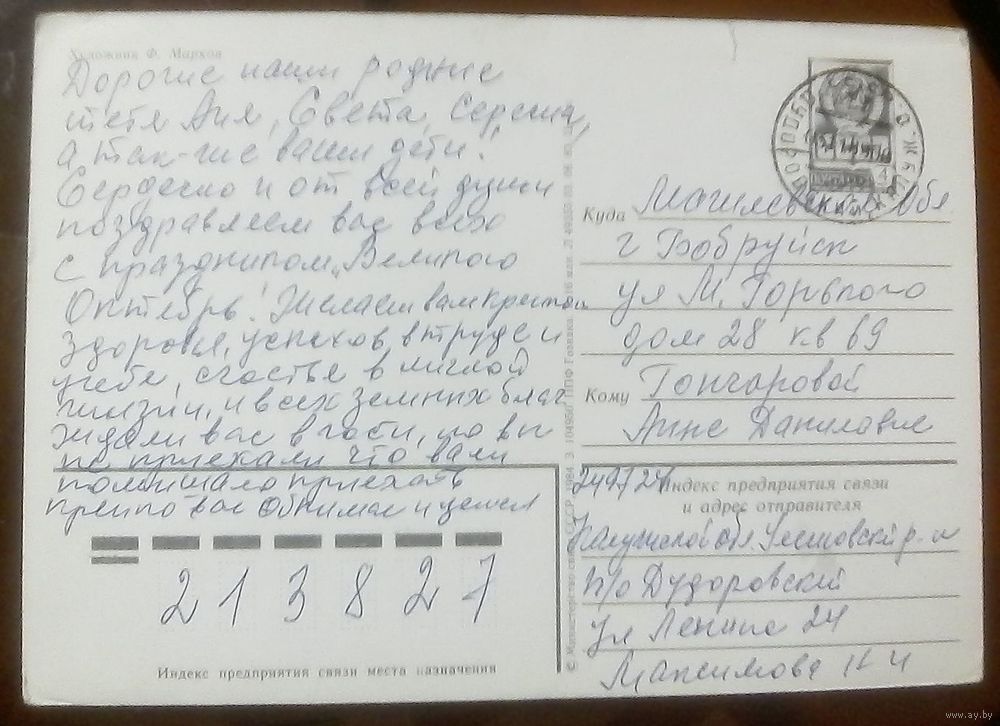 Художник Ф. Марков
Дорогие наши родные
тетя Аня, Света, Сережа,
а так-же ваши дети!
Сердечно и от всей души
поздравляем вас всех
с праздником „Великого
Октября! Желаем вам крепкого
здоровья, успехов в труде и
учебе, счастье в личной
жизни, и всех земних благ
ждали вас в гости, но вы
не приехали что вам
помешало приехать
крепко вас обнимаем и целуем
Куда Могилевская обл.
г Бобруйск
ул М. Горького
дом 28 кв 69
Кому Гончаровой
Анне Даниловне
249724
Индекс предприятия связи
и адрес отправителя
Калужской обл. Ульяновский р-н
п/о Дудоровский
ул Ленина 24
Максимова
213827
Индекс предприятия связи места назначения
© Министерство связи СССР. 1984. З. 104950. ППФ Гознака.
www.ay.by